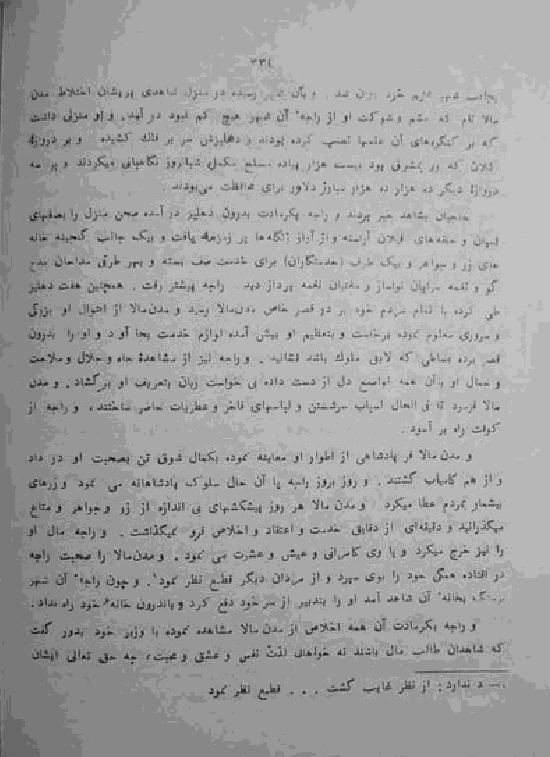 ۲۳٤
بجانب شهر عازم خود روان شد. و بآن شهر رسیده در منزل شاهدی پریشان اختلاط مدن
مالا نام که حشم و شوکت او از راجهٔ آن شهر هیچ کم نبود در آمد. و او منزلی داشت
که بر کنگرهای آن علمها نصب کرده بودند و دهلیزش سر بر فلک کشیده. و بر دروازهٔ
کلان که رو بمشرق بود بیست هزار پیاده مسلح مکمل شبانروز نگاهبانی میکردند و بر سه
دروازهٔ دیگر ده هزار ده هزار مبارز دلاور برای محافظت می‌بودند.
حاجبان بشاهد خبر بردند و راجه بکرماجت بدرون دهلیز در آمده صحن منزل را بصفهای
اسپان و حلقه‌های فیلان آراسته و از آواز زنگله‌ها پر زمزمه یافت و بیک جانب گنجینه خانه
های زر و جواهر و بیک طرف (خدمتگاران) برای خدمت صف بسته و بهر طرف مداحان مدح
گو و نغمه سرایان نوا‌ساز و مغنیان نغمه پرداز دید. راجه پیشتر رفت. همچنین هفت دهلیز
طی کرده با تمام مردم خود بر در قصر خاص مدن‌مالا رسید و مدن‌مالا از احوال او بزرگی
و سروری معلوم نموده برخاست و بتعظیم او پیش آمده لوازم خدمت بجا آورد و او را بدرون
قصر برده بساطی که لایق ملوک باشد نشانید. و راجه نیز از مشاهدهٔ جاه و جلال و ملاحت
و جمال او بآن همه تواضع دل از دست داده بی خواست زبان بتعریف او برگشاد. و مدن
مالا فرمود تا فی الحال اسباب سرشستن و لباسهای فاخر و عطریات حاضر ساختند، و راجه از
کوفت راه بر آسود.
و مدن مالا فر پادشاهی از اطوار او معاینه نموده بکمال شوق تن بصحبت او در داد
و از هم کامیاب گشتند. و روز بروز راجه با آن حال سلوک پادشاهانه می نمود و زرهای
بیشمار بمردم عطا میکرد. و مدن مالا هر روز پیشکشهای بی اندازه از زر و جواهر و متاع
میگذرانید و دقیقه‌ای از دقایق خدمت و اعتقاد و اخلاص فرو نمیگذاشت. و راجه مال او
را نیز خرج میکرد و با وی کامرانی و عیش و عشرت می نمود. و مدن‌مالا را صحبت راجه
در افتاده همگی خود را بوی سپرد و از مردان دیگر قطع نظر نمود. و چون راجهٔ آن شهر
بخانهٔ آن شاهد آمد او را بتدبیر از سر خود دفع کرد و باندرون خانهٔ خود راه نداد.
و راجه بکرماجت آن همه اخلاص از مدن مالا مشاهده نموده با وزیر خود بدور گفت
که شاهدان طالب مال باشند نه خواهای لذت نفس و عشق و محبت، چه حق تعالی ایشان
۱— د ندارد: از نظر غایب گشت . . . قطع نظر نمود